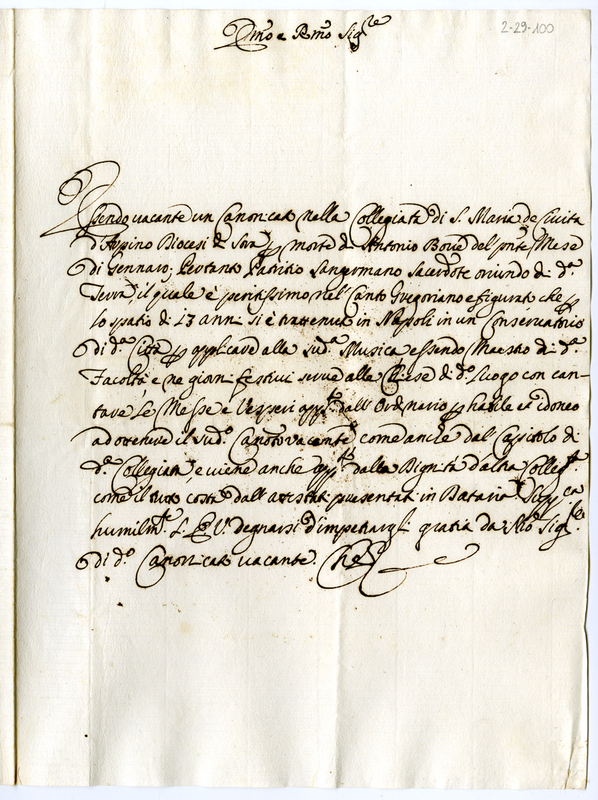 2-29-100
Em̃o e Rm̃o Sig.re
Essendo vacante un Canonicato nella Collegiata di S. Maria de Civita
d'Arpino Diocesi di Sora p morte di Antonio Bove del pnte Mese
di Gennaro, Pertanto Patritio Sangermano Sacerdote oriundo di d.a
Terra il quale è peritissimo nel Canto Gregoriano e figurato che p
lo spatio di 13 anni si è trattenuto in Napoli in un Conservatorio
di d.a Città p applicare alla sud.a Musica essendo Maestro di d.a
Facoltà e ne giorni festivi serve alle Chiese di d.o Luogo con can-
tare le Messe e Vesperi app.to dall'Ordinario p habile et idoneo
ad ottenere il sud.o Canonicato vacante come anche dal Capitolo di
d.a Collegiata, e viene anche app.to dalla Dignità d'altra Colleg.ta
come il tutto costa dall'attestati presentati in Dataria Supp.ca
humilm.te l'E V. degnarsi d'impetrargli gratia da N̄ro Sig.re
di d.o Canonicato vacante. Che